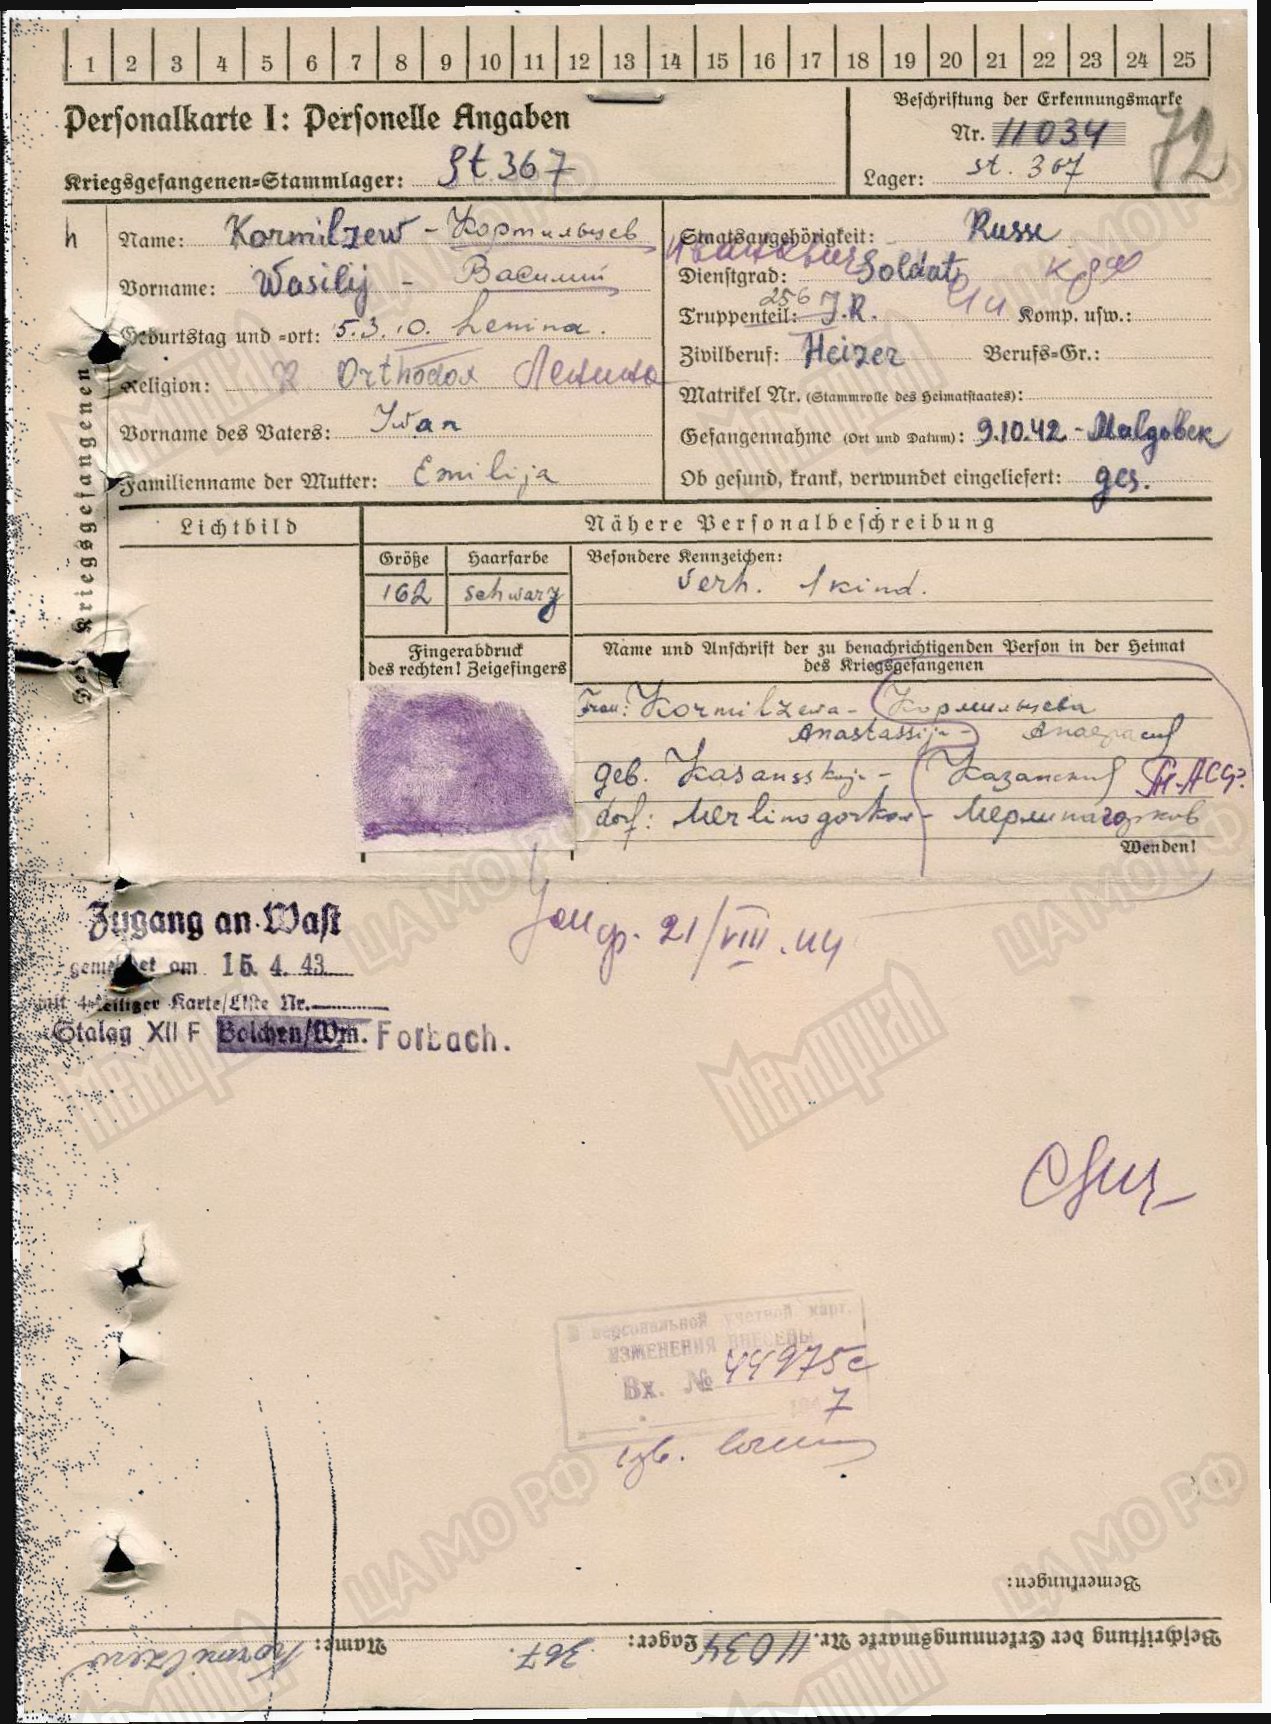 1 2 3 4 5 6 7 8 9 10 11 12 13 14 15 16 17 18 19 20 21 22 23 24 25
Personalkarte I: Personelle Angaben
Beschriftung der Erkennungsmarke
Nr. 11034
72
Kriegsgefangenen=Stammlager: St. 367
Lager: st. 367
h
des Kriegsgefangenen
Name: Kormilzew - Кормильцев
Vorname: Wasilij - Василий
Иванович
Geburtstag und =ort: 5.3.10. Lenina.
Religion: Orthodox Ленина
Vorname des Vaters: Iwan
Familienname der Mutter: Emilija
Staatsangehörigkeit: Russe
Dienstgrad: Soldat
Truppenteil: 256 J.R. Komp. usw.:
Zivilberuf: Heizer Berufs=Gr.:
Matrikel Nr. (Stammrolle des Heimatstaates):
Gefangennahme (Ort und Datum): 9.10.42 - Malgobek
Ob gesund, krank, verwundet eingeliefert: ges.
Lichtbild
Nähere Personalbeschreibung
Größe Haarfarbe Besondere Kennzeichen:
162 schwarz verh. 1 kind.
Fingerabdruck
des rechten! Zeigefingers
Name und Anschrift der zu benachrichtigenden Person in der Heimat
des Kriegsgefangenen
Frau: Kormilzewa - Кормильцева
Anastassija -
geb. Kasansskaja -
dorf: Merlinogorkow -
Wenden!
Zugang an Wast
gemeldet am 15. 4. 43
mit 4-teiliger Karte/Liste Nr.
Stalag XII F Bolchen/Wm. Forbach.
21/VIII.44
В персональной учетной карт.
ИЗМЕНЕНИЯ ВНЕСЕНЫ
Вх. № 44975с
1947
Bemerkungen:
Beschriftung der Erkennungsmarke Nr. 11034 Lager: 367. Name: Kormilzew
Мемориал
ЦАМО РФ